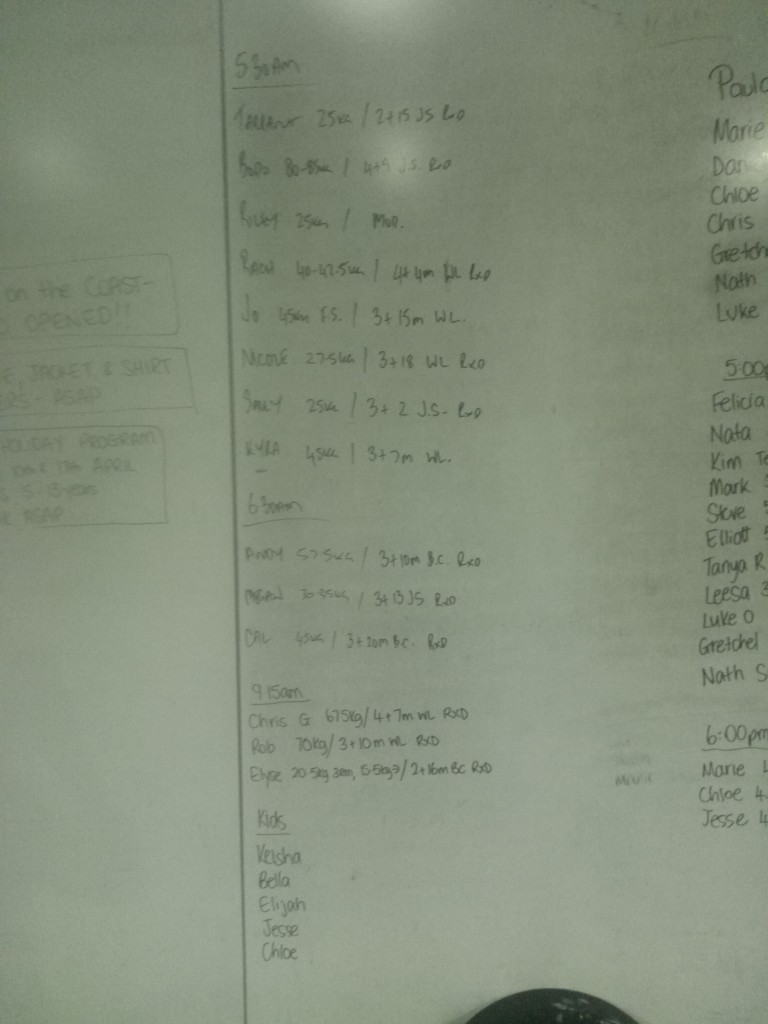 on the COAST-
OPENED!!
JACKET & SHIRT
ASAP
HOLIDAY PROGRAM
APRIL
5-13years
ASAP
5:30AM
25KG / 2+15 JS RXD
80-85KG / 4+9 J.S. RXD
RICKY 25KG / MOD.
40-42.5KG / 4+4m WL RXD
JO 45KG F.S. / 3+15m WL.
NICOLE 27.5KG / 3+18 WL RXD
SALLY 25KG / 3+2 J.S. RXD
KYRA 45KG / 3+7m WL.
6:30AM
ANDY 57.5KG / 3+10m B.C. RXD
3+13 JS RXD
CAL 45KG / 3+20m B.C. RXD
9:15am
Chris G 67.5kg / 4+7m WL RXD
Rob 70kg / 3+10m WL RXD
Elyse 20.5kg / 2+16m BC RXD
Kids
Keisha
Bella
Elijah
Jesse
Chloe
Marie
Dan
Chloe
Chris
Gretch
Nath
Luke
5:00p
Felicia
Nata
Kim Te
Mark
Steve
Elliott
Tanya R
Leesa 3
Luke O
Gretchel
Nath S
6:00pm
Marie 4
Chloe 4
Jesse 4